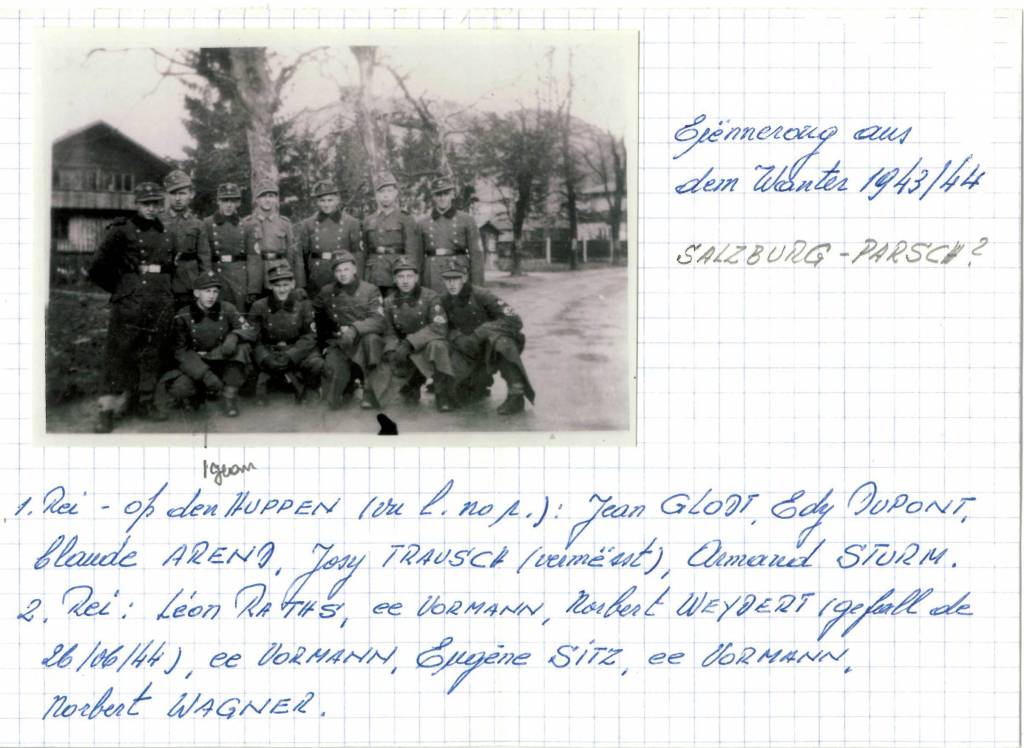 Erënnerong aus
dem Wanter 1943/44
SALZBURG - PARSCH?
Jean
1. Rei - op den HUPPEN (vu l. no r.): Jean GLODT, Edy DUPONT,
Claude AREND, Josy TRAUSCH (vermësst), Armand STURM.
2. Rei: Léon RATHS, ee VORMANN, Norbert WEYDERT (gefall de
26/06/44), ee VORMANN, Eugène SITZ, ee VORMANN,
Norbert WAGNER.